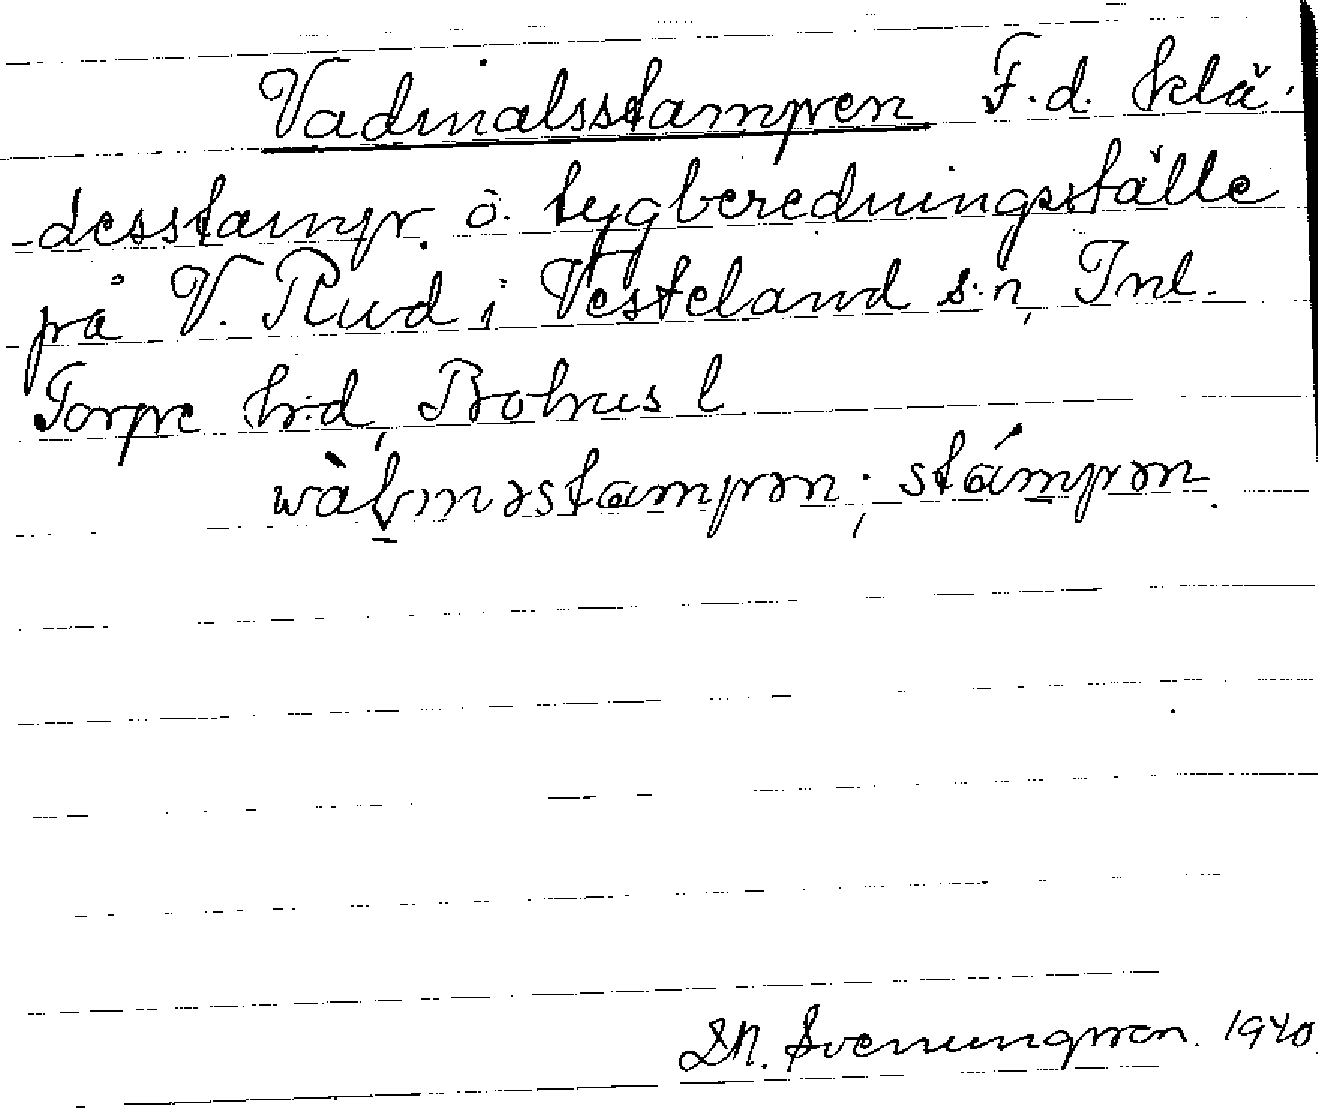 Vadmalsstampen F.d. klä-
desstamp. o. tygberedningsställe
på V. Rud i Vesteland s:n, Inl.
Torpe h:d, Bohus l
stámpən.
Svenungsson. 1940.